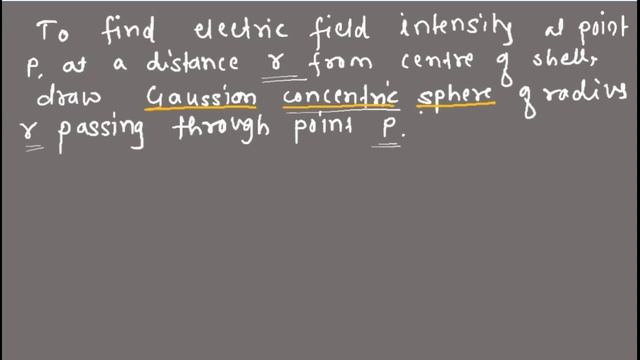 To find electric field intensity at point
P, at a distance r from centre of shell,
draw Gaussion concentric sphere of radius
r passing through point P.